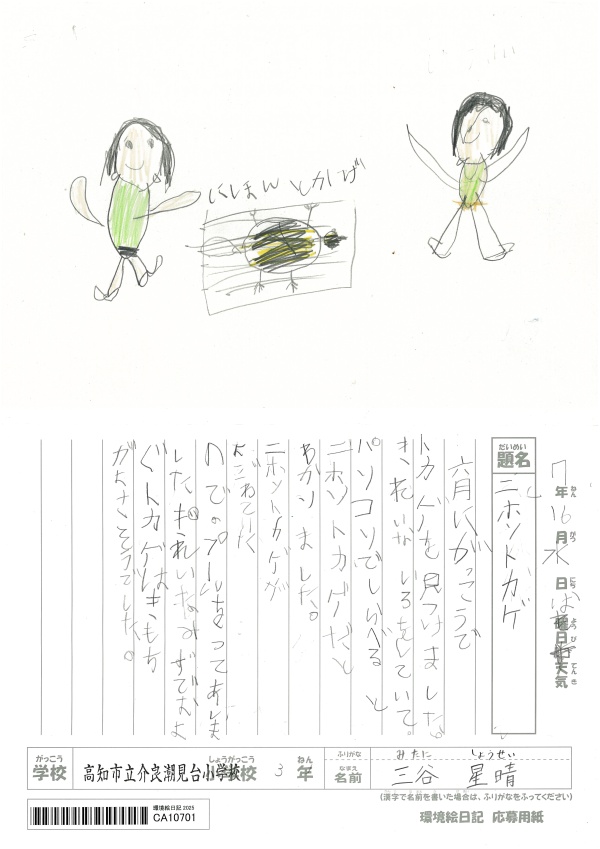 にほんとかげ
7年16月水日は曜日天気
題名 ニホントカゲ
六月にがっこうで
トカゲを見つけました。
きれいないろをしていて。
パソコンでしらべると
ニホントカゲだと
わかりました。
ニホントカゲが
のでプールをつってあしま
した きれいなみずでおよ
ぐトカゲはきもち
がよさそうでした。
学校 高知市立介良潮見台小学校
3年
ふりがな みたに しょうせい
名前 三谷 星晴
(漢字で名前を書いた場合は、ふりがなをふってください)
環境絵日記 2025
CA10701
環境絵日記 応募用紙